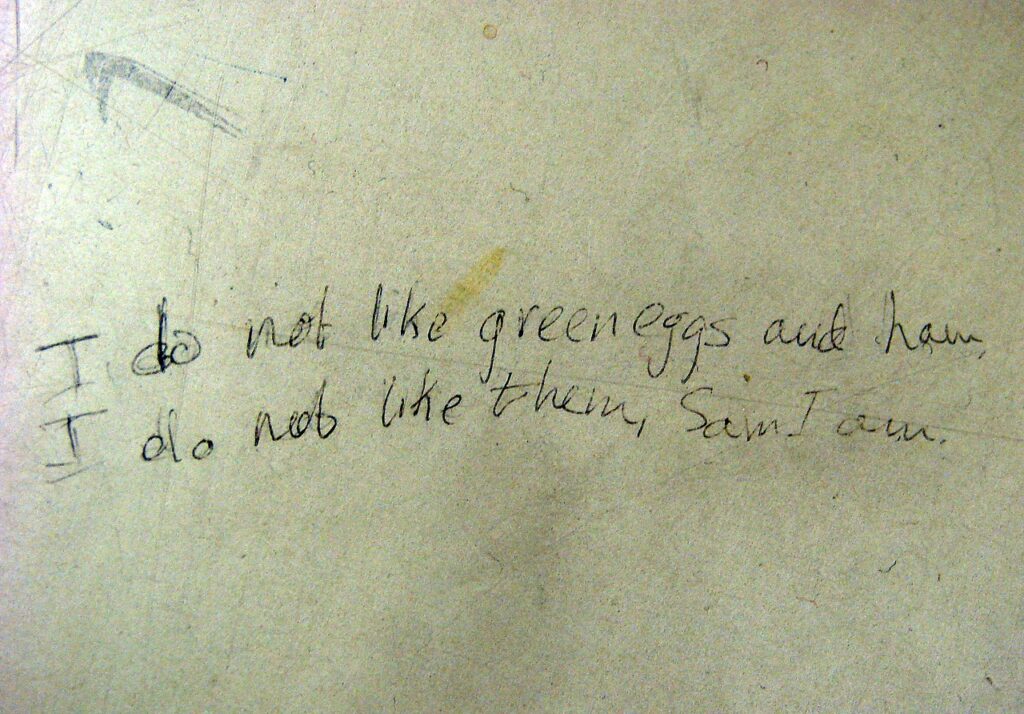 I do not like green eggs and ham,
I do not like them, Sam I am.